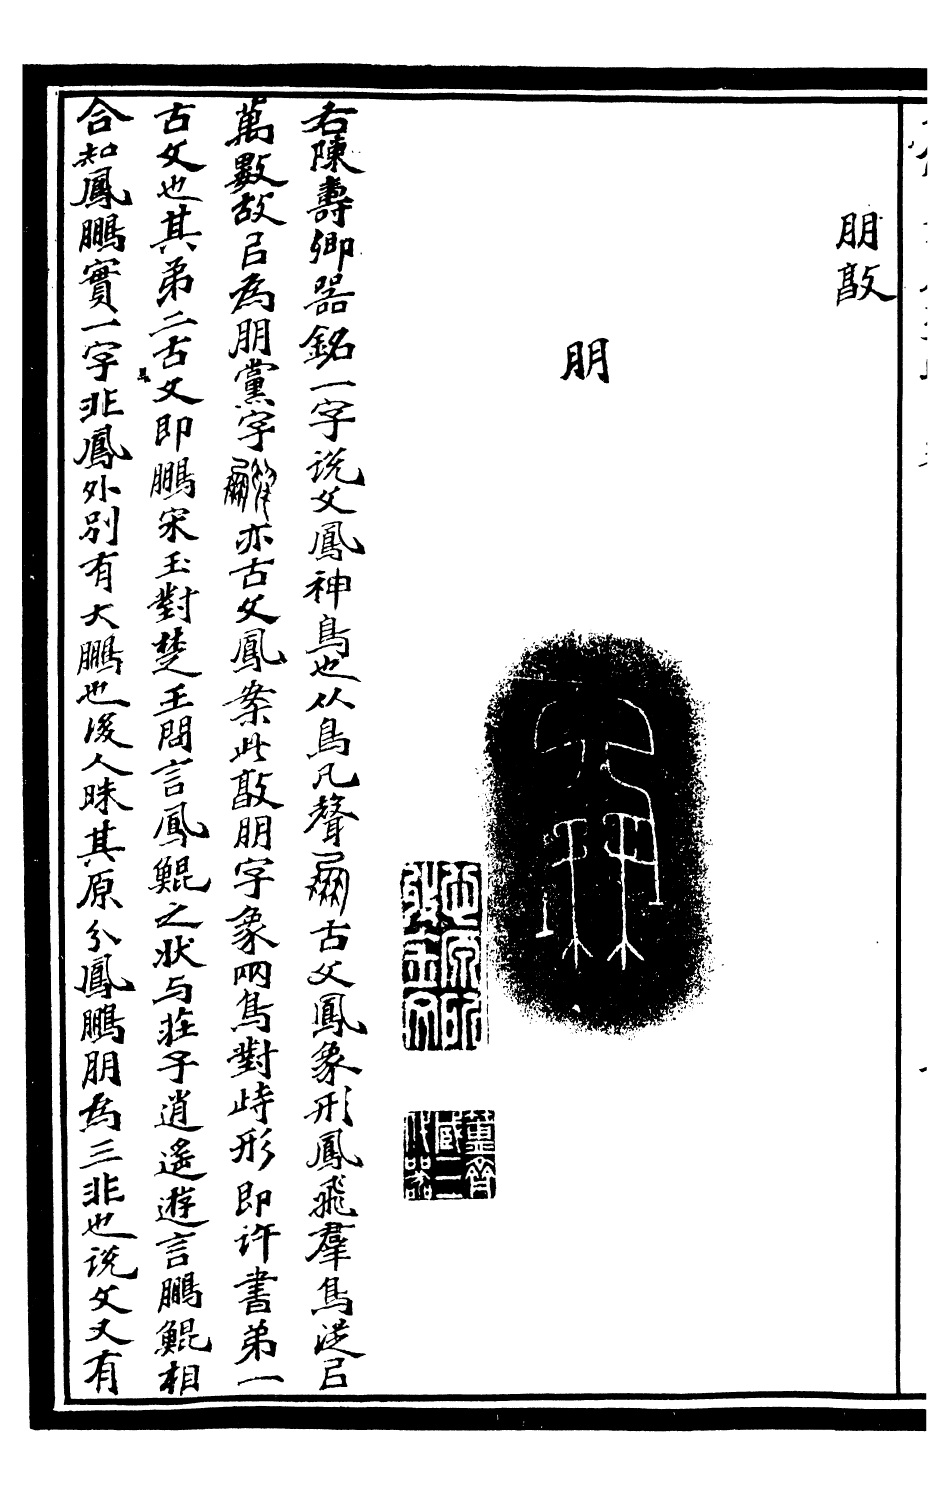 朋敦
朋
右陳壽卿器銘一字说文鳳神鳥也从鳥凡聲古文鳳象形鳳飛羣鳥從㠯
萬數故㠯為朋黨字亦古文鳳案此敦朋字象兩鳥對峙形即许書弟一
古文也其弟二古文即鵬宋玉對楚王問言鳳鯤之狀与莊子逍遙遊言鵬鯤相
合知鳳鵬實一字非鳳外別有大鵬也後人昧其原分鳳鵬朋為三非也说文又有